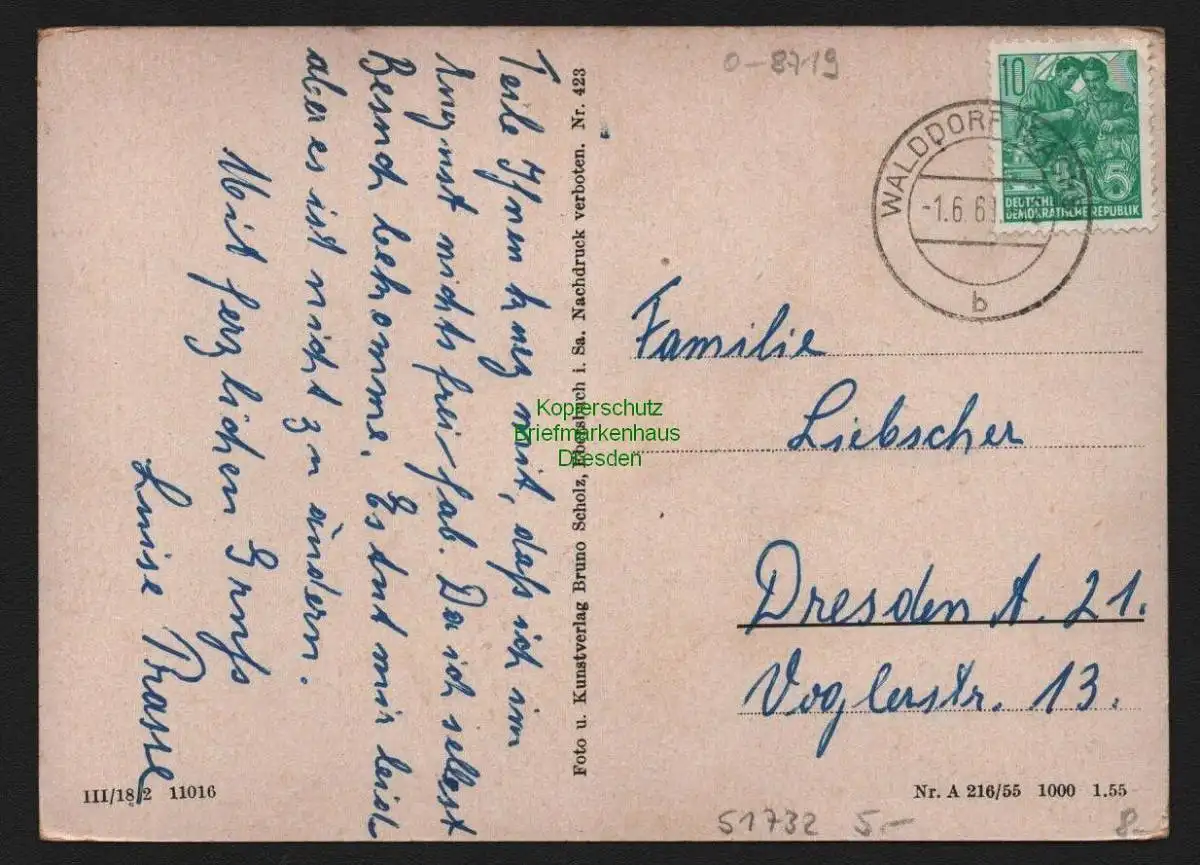 Teile Ihnen kurz mit, daß ich im
August nichts frei hab. Da ich selbst
Besuch bekomme. Es tut mir leid
aber es ist nicht zu ändern.
Mit herzlichen Gruß
Luise Prasse
Foto u. Kunstverlag Bruno Scholz, Ebersbach i. Sa. Nachdruck verboten. Nr. 423
III/18/2 11016
0-8719
10
5
DEUTSCHE
DEMOKRATISCHE REPUBLIK
WALDDORF
-1.6.6
b
Familie
Liebscher
Dresden A. 21.
Voglerstr. 13.
Nr. A 216/55 1000 1.55
51732 5.-
8.-
Kopierschutz
Briefmarkenhaus
Dresden